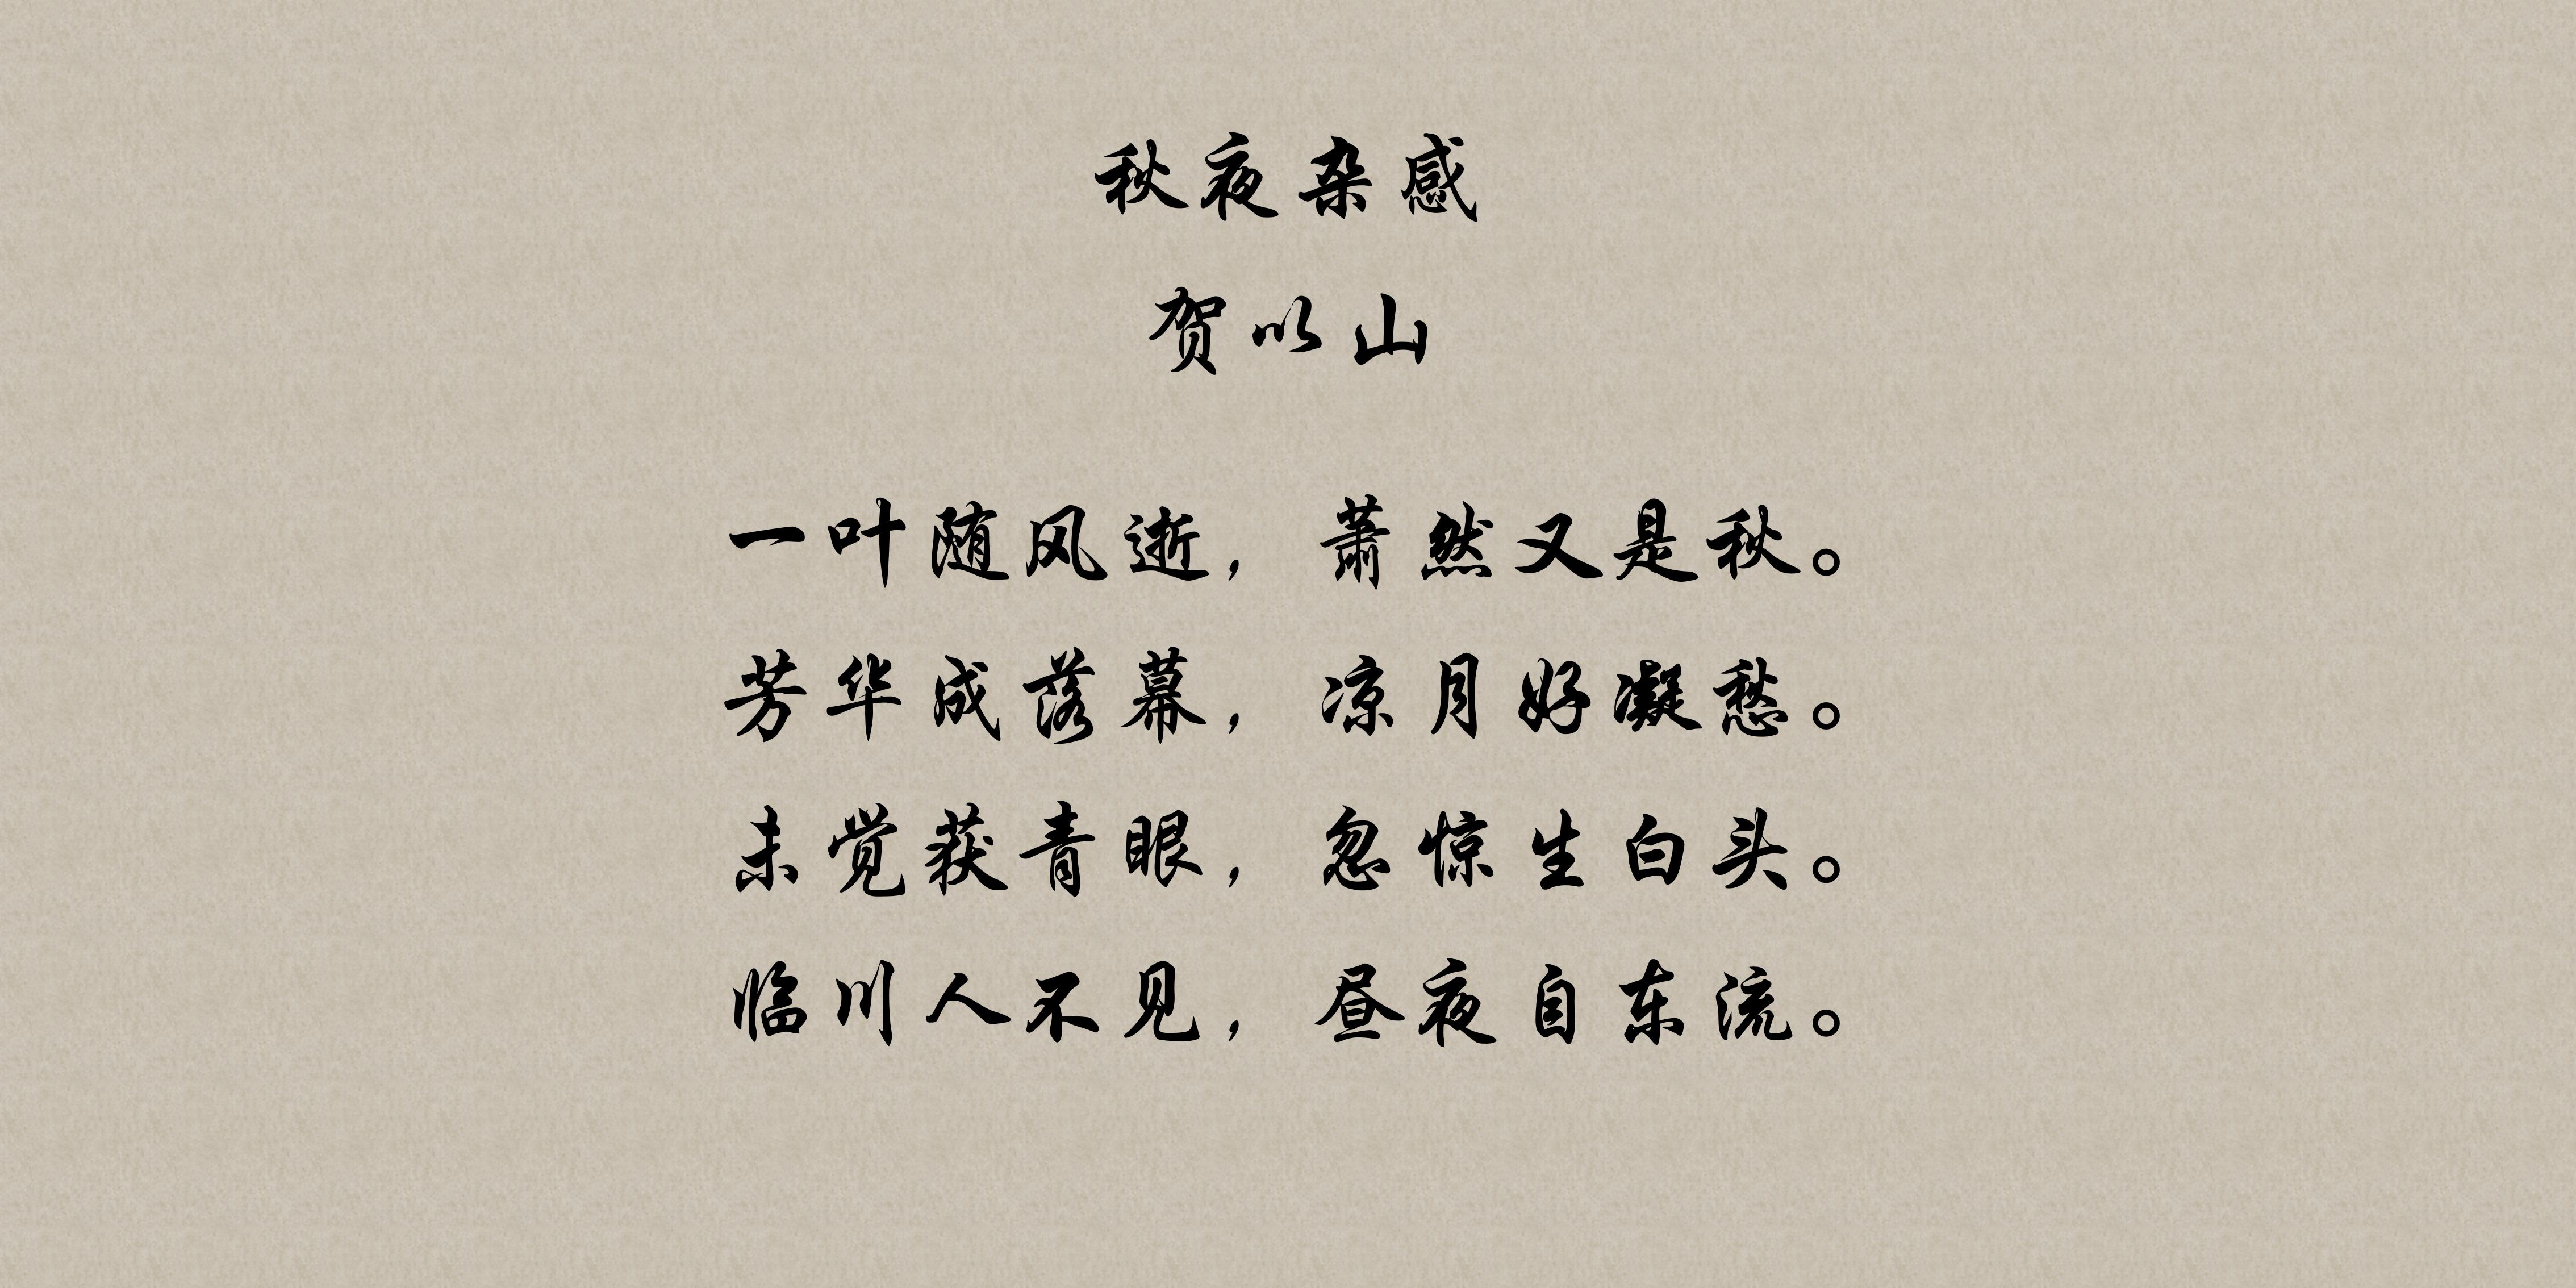 秋夜杂感
贺以山
一叶随风逝，萧然又是秋。
芳华成落幕，凉月好凝愁。
未觉获青眼，忽惊生白头。
临川人不见，昼夜自东流。